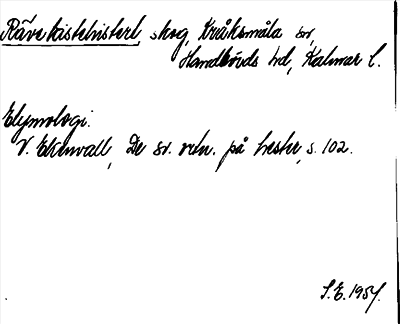 skog, Kråksmåla sn,
Handbörds hd, Kalmar l.
Etymologi.
V. Ekenvall, De sv. ortn. på hester, s. 102.
S.E. 1957.